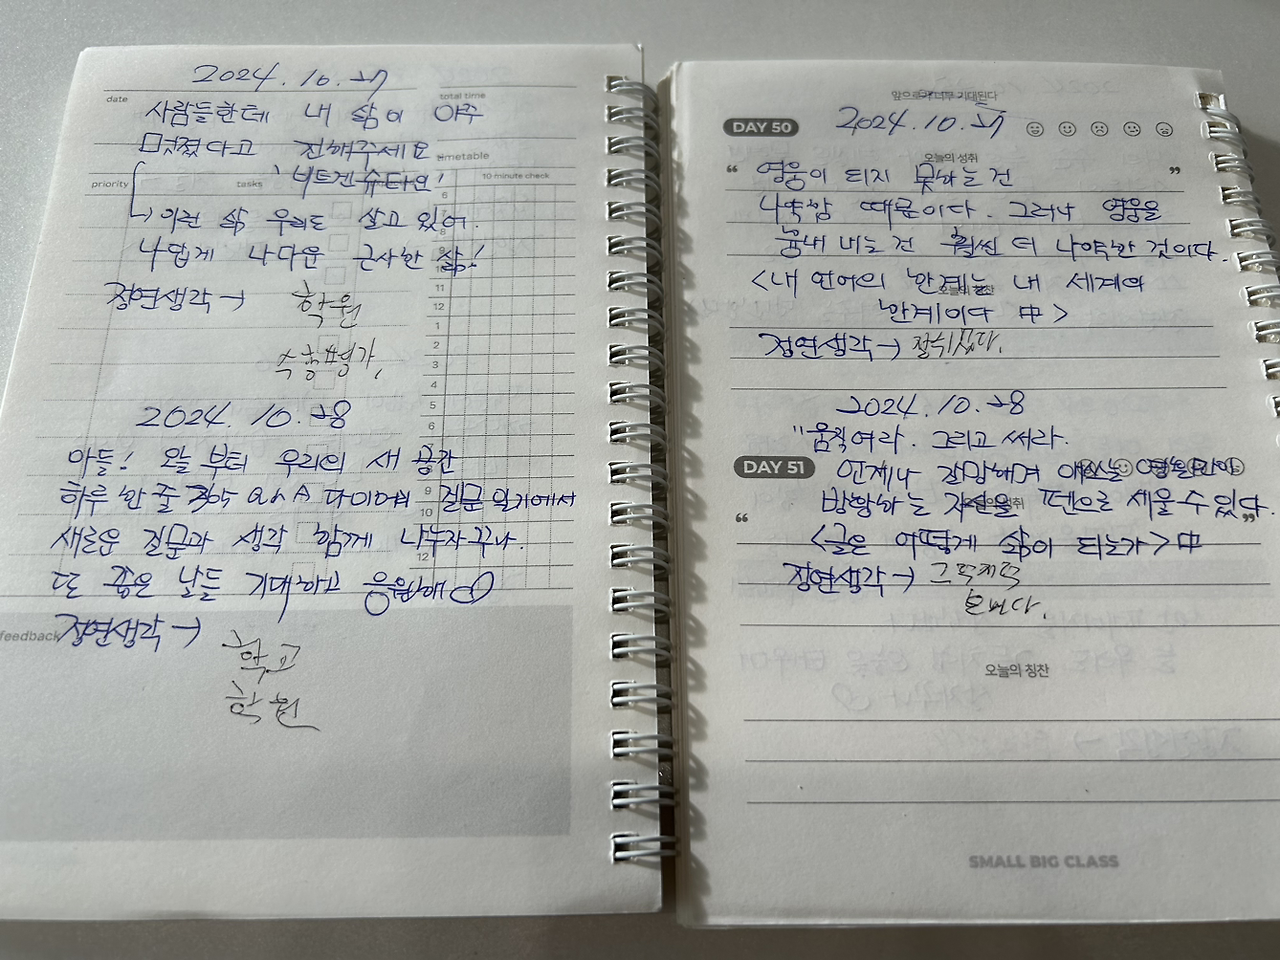 2024. 10. 27
date
total time
사람들한테 내 삶이 아주
멋졌다고 전해주세요
timetable
priority
tasks
10 minute check
'비트겐슈타인'
6
7
8
9
10
11
12
1
2
3
4
5
6
7
8
9
10
11
12
↳ 이런 삶 우리도 살고 있어.
나답게 나다운 근사한 삶!
정연생각→ 학원
수행평가,
2024. 10. 28
아들! 오늘 부터 우리의 새 공간
하루 한 줄 3년 Q&A 다이어리 질문 일기에서
새로운 질문과 생각 함께 나누자꾸나.
또 좋은 날들 기대하고 응원해♡
feedback
정연생각→
학교
학원
앞으로가 너무 기대된다
DAY 50
2024. 10. 27
오늘의 성취
“ 영웅이 되지 못하는 건 ”
나약함 때문이다. 그러나 영웅을
흉내 내는 건 훨씬 더 나약한 것이다.
<내 언어의 한계는 내 세계의
오늘의 칭찬
한계이다 中>
정연생각→ 잘쉬었다.
2024. 10. 28
"움직여라. 그리고 써라.
DAY 51
언제나 갈망하며 애쓰는 영혼만이
방황하는 자신을 펜으로 세울 수 있다.
오늘의 성취
“ ”
<글은 어떻게 삶이 되는가> 中
정연생각→
오늘의 칭찬
SMALL BIG CLASS